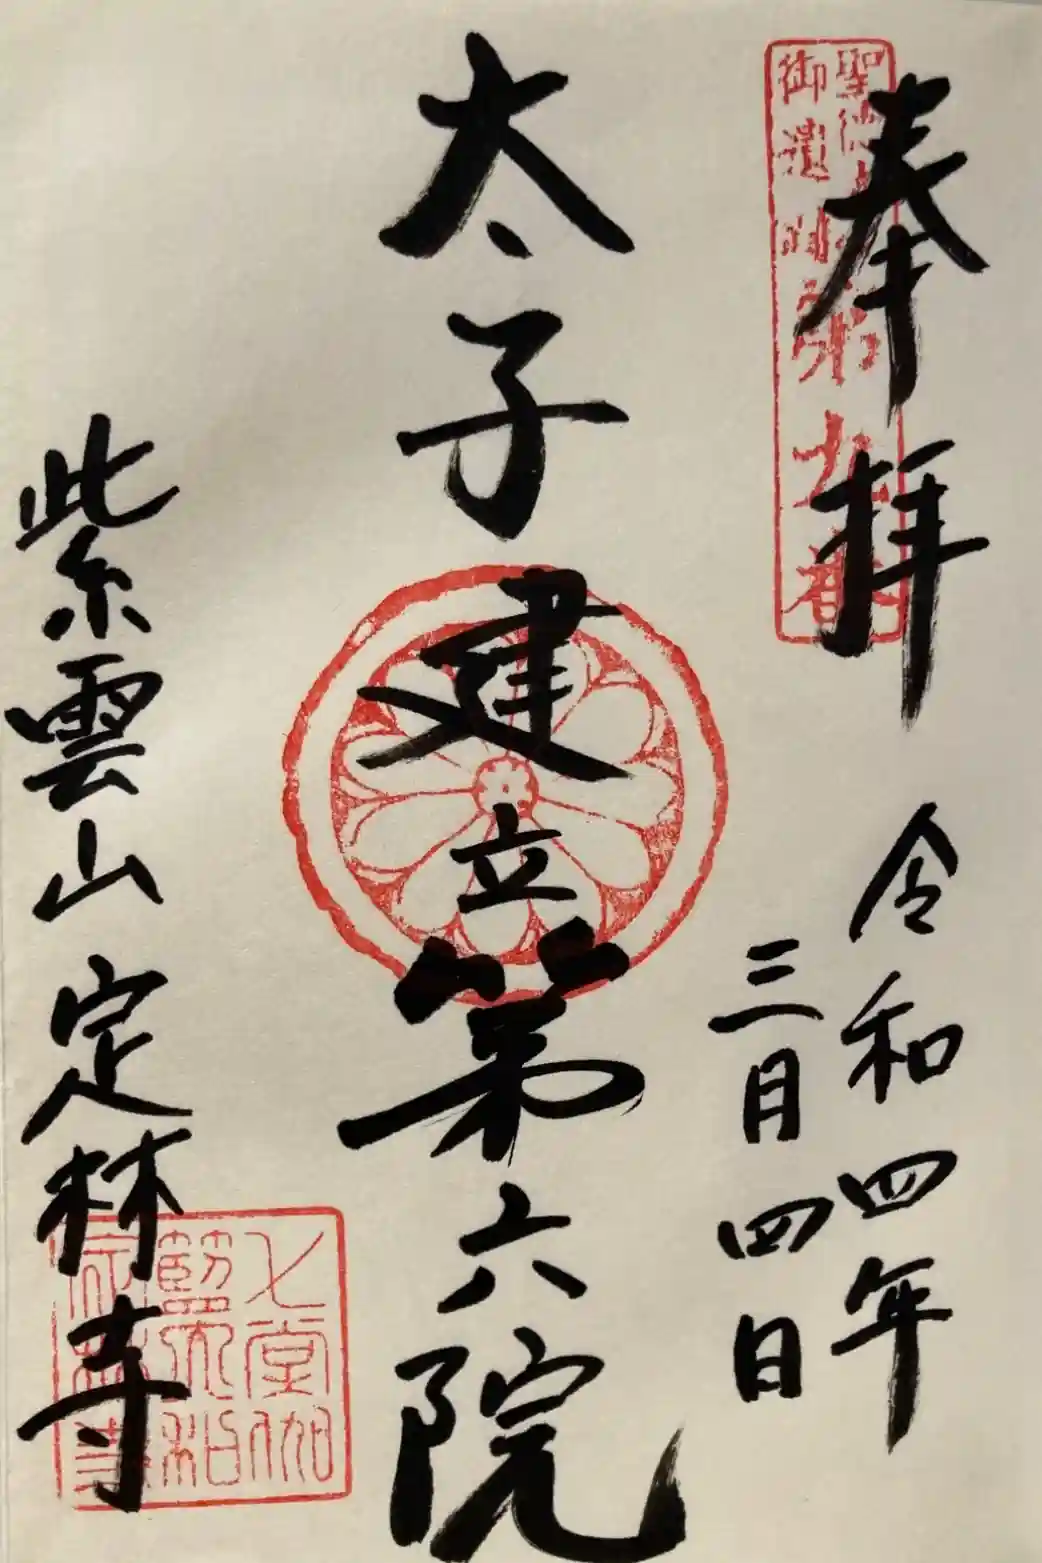 奉拝
令和四年
三月四日
太子建立第六院
紫雲山定林寺
聖徳
御遺跡第九番
七堂伽
藍
定林寺